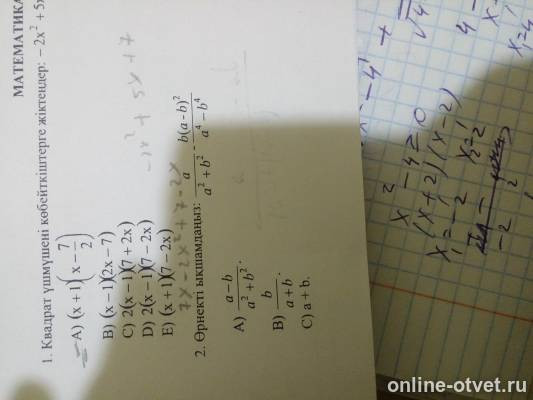 МАТЕМАТИКА
1. Квадрат үшмүшені көбейткіштерге жіктеңдер: −2x² + 5x
A) (x + 1)(x − 7/2)
B) (x − 1)(2x − 7)
C) 2(x − 1)(7 + 2x)
D) 2(x − 1)(7 − 2x)
E) (x + 1)(7 − 2x)
−2x² + 5x + 7
7x − 2x² + 7 − 2x
2. Өрнекті ықшамдаңыз: a/(a² + b²) − b(a−b)²/(a⁴ − b⁴)
A) (a − b)/(a² + b²).
B) b/(a + b).
C) a + b.
x² − 4 = 0
(x + 2)(x − 2)
x₁ = −2 x₂ = 2
online-otvet.ru